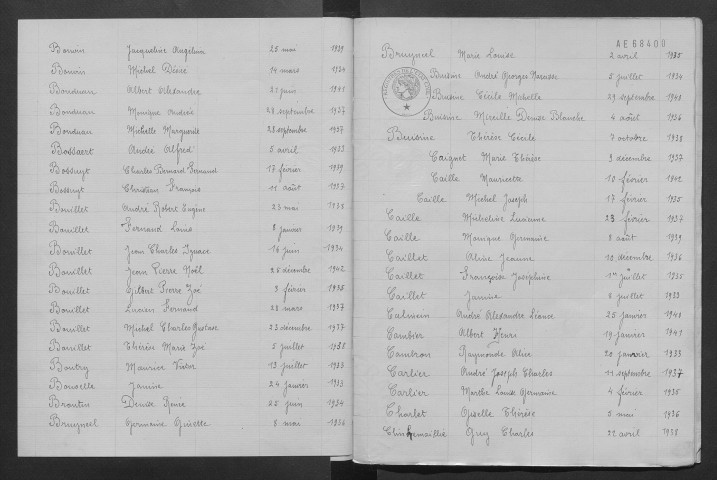 Bouvin Jacqueline Angéline 25 mai 1929
Bouvin Michel Désiré 14 mars 1934
Bonduau Albert Alexandre 21 juin 1941
Bonduau Monique Andrée 28 septembre 1937
Bonduau Michelle Marguerite 28 septembre 1937
Bossaert André Alfred 5 avril 1933
Bossuyt Charles Bernard Fernand 17 février 1939
Bossuyt Christian François 11 août 1937
Bouillet André Robert Eugène 23 mai 1938
Bouillet Fernand Louis 8 janvier 1939
Bouillet Jean Charles Ignace 16 juin 1934
Bouillet Jean Pierre Noël 25 décembre 1942
Bouillet Gilbert Pierre Zoé 3 février 1938
Bouillet Lucien Fernand 28 mars 1937
Bouillet Michel Charles Gustave 23 décembre 1937
Bouillet Thérèse Marie Zoé 5 juillet 1938
Boutry Maurice Victor 13 juillet 1933
Bouselle Janine 24 janvier 1935
Broutin Denise Renée 25 juin 1934
Bruyneel Germaine Ginette 8 mai 1936
AE68400
Bruyneel Marie Louise 2 avril 1935
Buisine André Georges Narcisse 5 juillet 1934
Buisine Cécile Michelle 29 septembre 1941
Buisine Mireille Denise Blanche 4 août 1936
Buisine Thérèse Cécile 7 octobre 1938
Caignet Marie Thérèse 9 décembre 1937
Caille Mauricette 10 février 1942
Caille Michel Joseph 17 février 1935
Caille Micheline Lucienne 23 février 1937
Caille Monique Germaine 8 août 1939
Caillet Aline Jeanne 10 décembre 1936
Caillet Françoise Joséphine 1er juillet 1935
Caillet Janine 8 juillet 1933
Calwein André Alexandre Léonce 25 janvier 1948
Cambier Albert Henri 19 janvier 1941
Cambron Raymonde Alice 20 janvier 1933
Carlier André Joseph Charles 11 septembre 1937
Carlier Marthe Louise Germaine 4 février 1935
Charlet Giselle Thérèse 5 mai 1936
Guy Charles 22 avril 1938